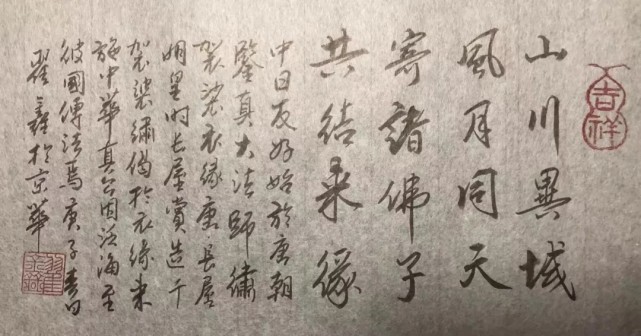 吉祥
山川異域
風月同天
寄諸佛子
共结来缘
中日友好始於唐朝
鑒真大法師繡
袈裟衣緣唐長屋
明皇时长屋赏造千
袈裟繡偈於衣緣来
施中華真公因泛海至
彼國傳法焉庚子春日
翟 於京華